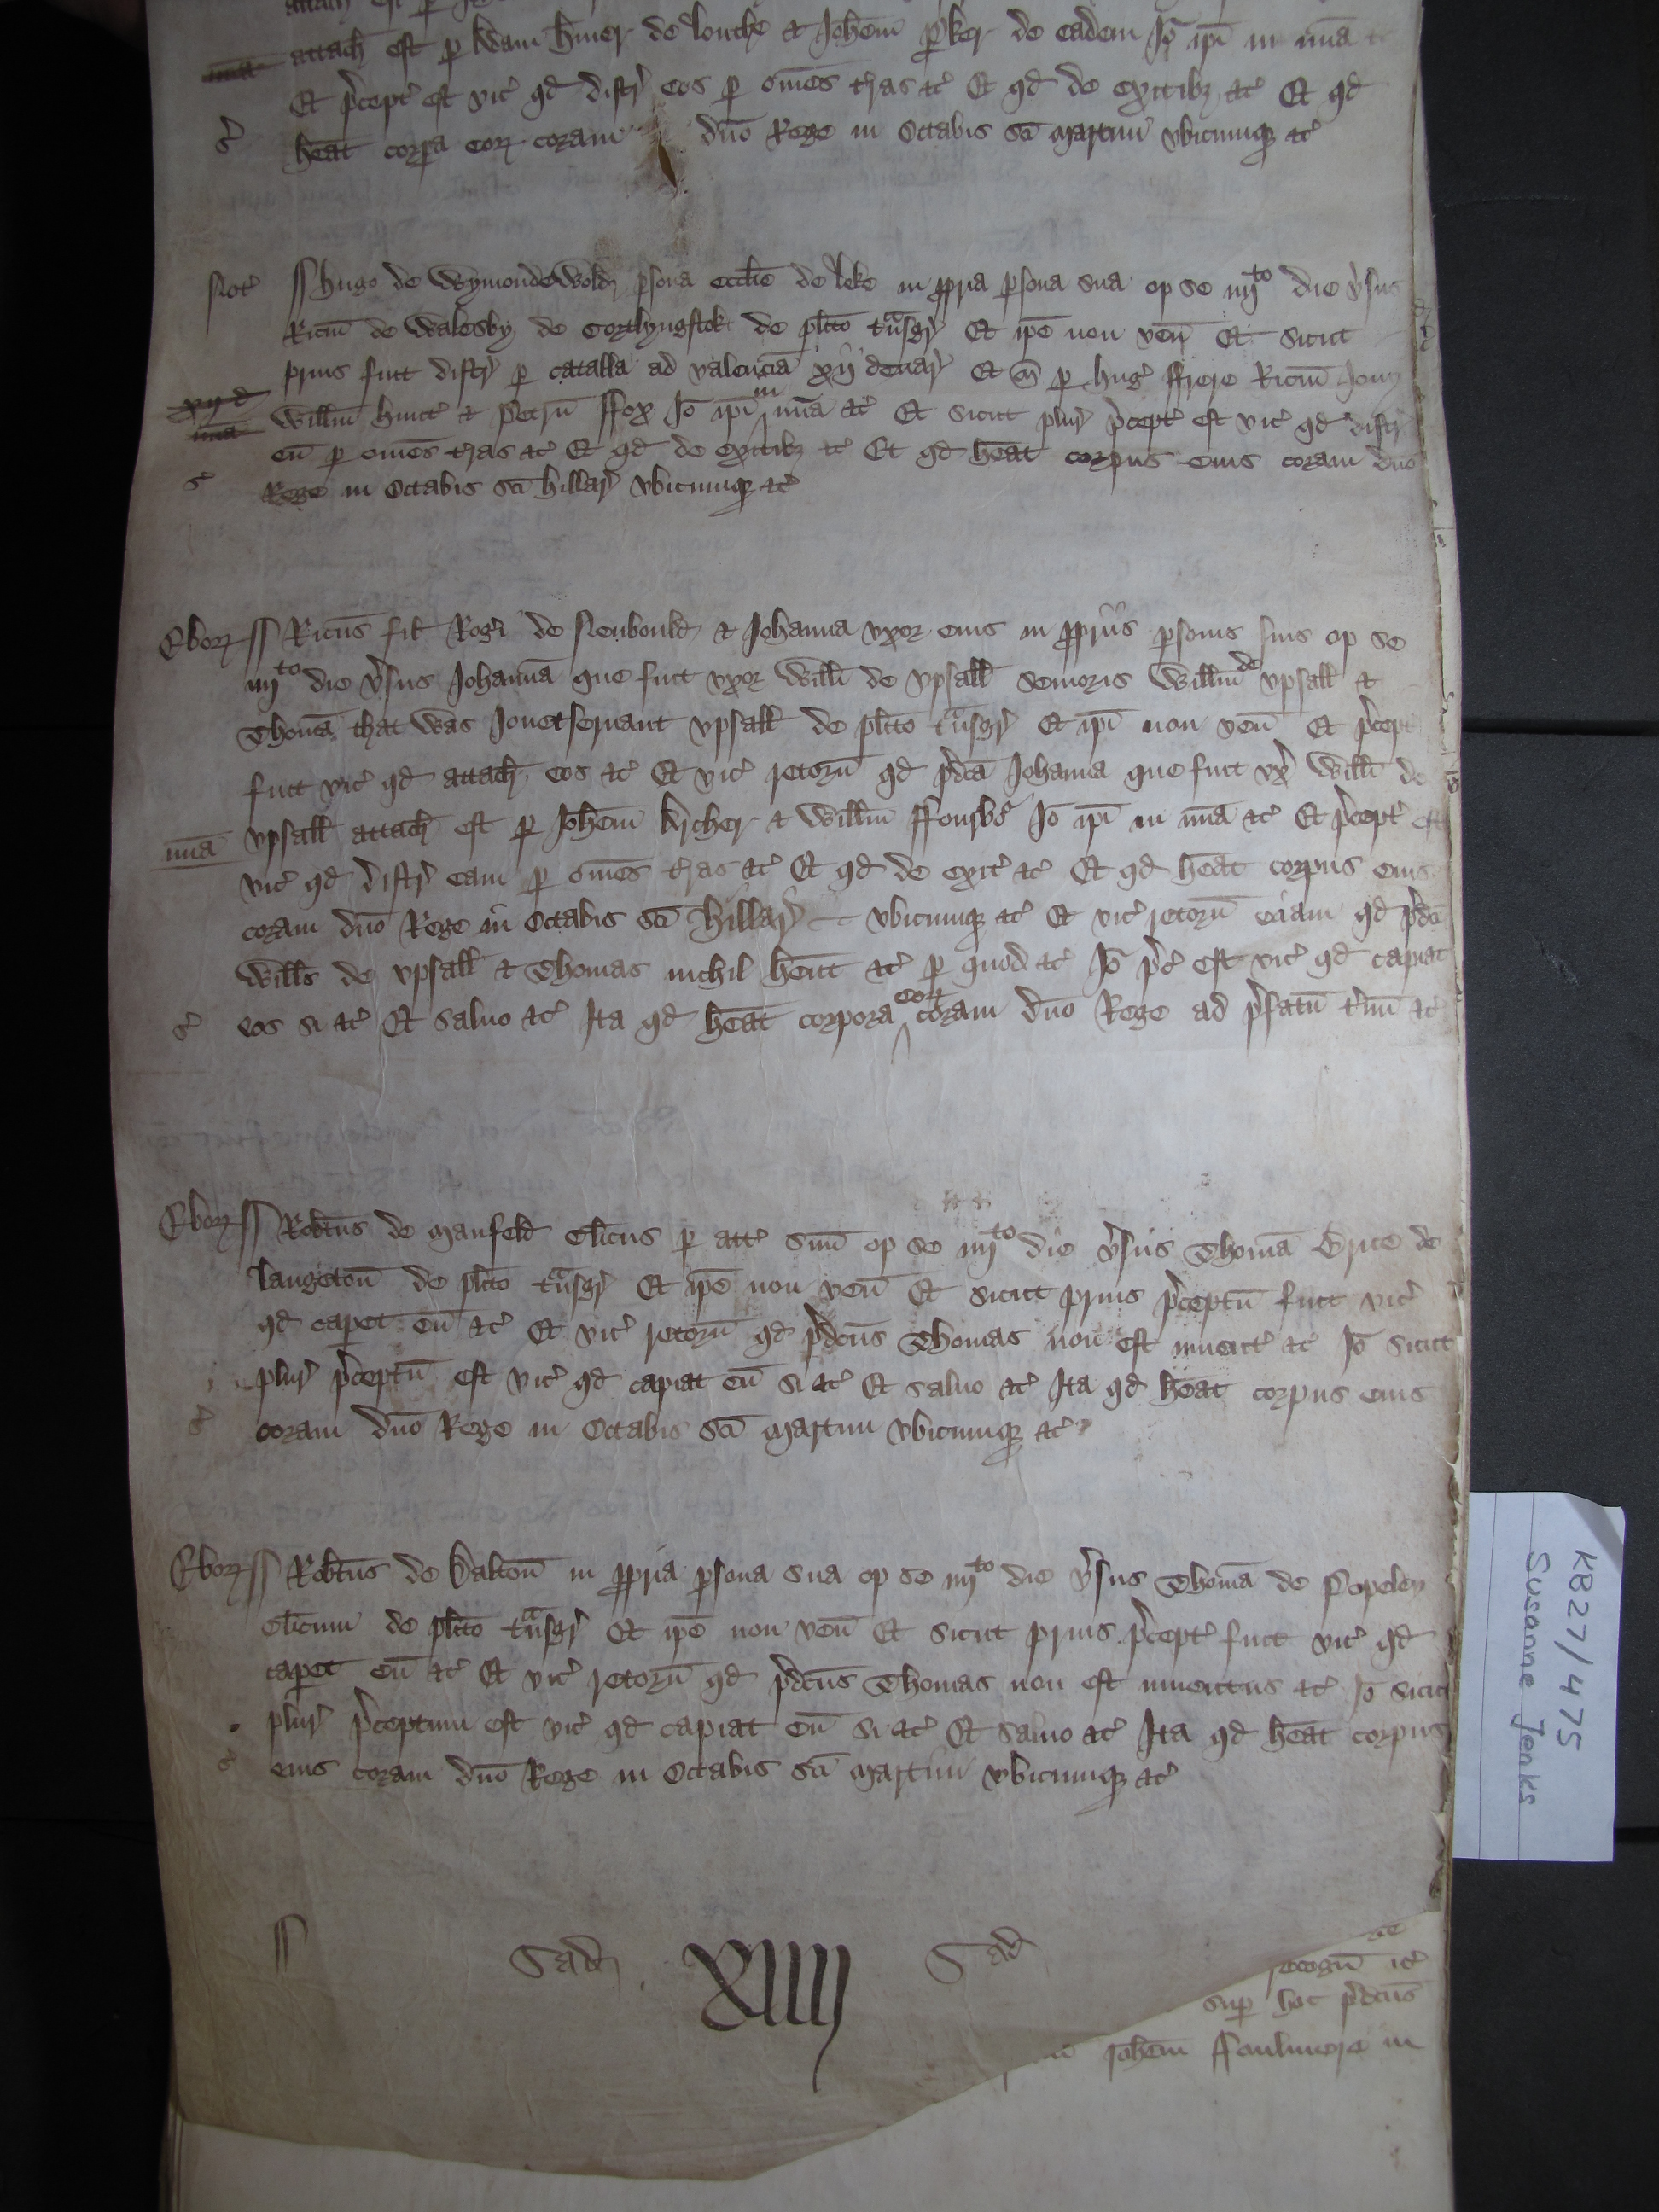 attach est p Adam hiner de lonche & Johem pker de eadem Jo ipi in mia &c
mia
Et pcept est vic qd distr eos p omes tras &c Et qd de exitibz &c Et qd
s heat corpa eor coram dno Rege in Octabis sci Martini vbicumqz &c
Not Hugo de Wymondewold psona ecctie de leke in ppria psona sua op se iiijto die vsus
Ricm de Walesby de Cortlyngstok de plito tnsgr Et ipe non ven Et sicut
prius fuit distr p catalla ad valencia xij denar Et m p Hug ffrere Ricm
xijd
mia Willm hunt & Petru ffox Jo ipi in mia &c Et sicut plur pcept est vic qd distr
eu p omes tras &c Et qd de exitibz &c Et qd heat corpus eius coram dno
s Rege in Octabis sci hillar vbicumqz &c
Ebor Ricus fil Rogi de Neubould & Johanna vxor eius in ppriis psonis suis op se
iiijto die vsus Johanna que fuit vxor Willi de vpsall senioris Willm de vpsall &
Thoma that was Jonetseruant vpsall de plito tnsgr Et ipi non ven Et pcept
fuit vic qd attach eos &c Et vic retorn qd pdca Johanna que fuit vx Willi de
mia vpsall attach est p Johem Archer & Willm Jo ipi in mia &c Et pcept est
vic qd distr eam p omes tras &c Et qd de exit &c Et qd heat corpus eius
coram dno Rege in Octabis sci hillar vbicumqz &c Et vic retorn eciam qd pdci
Wills de vpsall & Thomas nichil hent &c p quod &c Jo pc est vic qd capiat
s eos si &c Et saluo &c Ita qd heat corpora eor coram dno Rege ad pfatu tmu &c
Ebor Robtus de Manfeld clicus p att suu op se iiijto die vsus Thoma Brice de
langeton de plito tnsgr Et ipe non ven Et sicut prius pceptu fuit vic
qd capet eu &c Et vic retorn qd pdcus Thomas non est inuent &c Jo sicut
plur pceptu est vic qd capiat eu si &c Et saluo &c Ita qd heat corpus eius
s coram dno Rege in Octabis sci Martini vbicumqz &c
Ebor Robtus de Dalton in ppria psona sua op se iiijto die vsus Thoma de Popeley
clicum de plito tnsgr Et ipe non ven Et sicut prius pcept fuit vic qd
capet eu &c Et vic retorn qd pdcus Thomas non est inuentus &c Jo sicut
plur pceptum est vic qd capiat eu si &c Et saluo &c Ita qd heat corpus
s eius coram dno Rege in Octabis sci Martini vbicumqz &c
Sad XIIII Sad
recogn &c
sup hoc pdcus
Johem ffoulmere in
KB27/475
Susanne Jenks